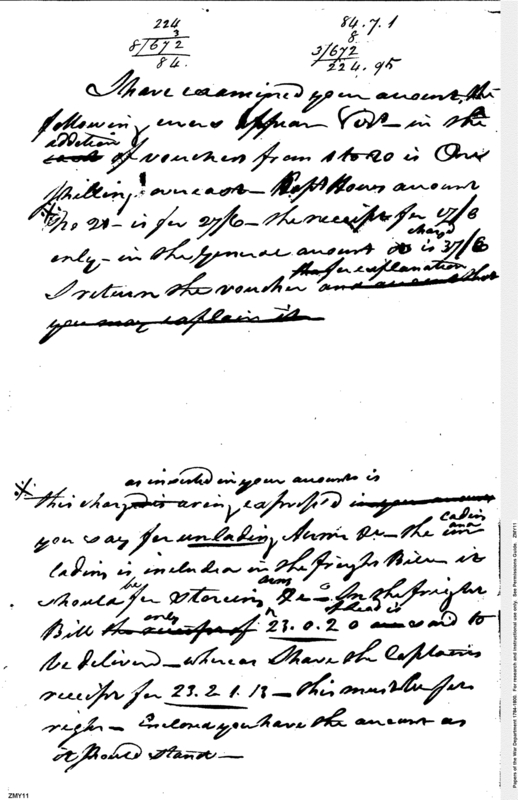 224
3
8/672
84.
84.7.1
8
3/672
224.95
I have examined your account, the
following errors appear Vizt in the
addition
of vouchers from 1 to 20 is One
shilling overcast — Capt account
No 21 — is for 27/6 — the receipt for 17/6
charged
only — in the General account is 37/6
that for explanation
I return the voucher and account that
you may explain it
as inserted in your accounts is
this charge is wrong expressed in your account
you say for unlading Arms &c — the
lading
and
lading is included in the freight Bill it
be arms
should for storeing &c — In the freight
only
Bill the receipt of 23.0.2.0 said to
be delivered — whereas I have the Captains
receipt for 23.2.1.13 — this must be
right — Inclosed you have the account as
it should stand —
ZMY11
Papers of the War Department 1784-1800. For research and instructional use only. See Permissions Guide. ZMY11